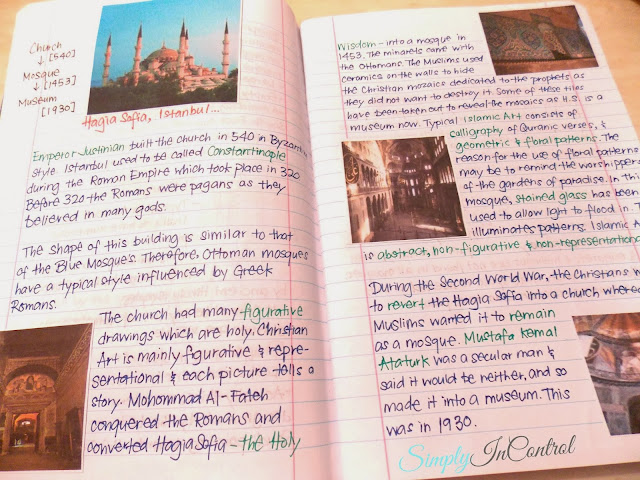 Church
↓ [540]
Mosque
↓ [1453]
Museum
[1930]
Hagia Sofia, Istanbul...
Emperor Justinian built the church in 540 in Byzant
style. Istanbul used to be called Constantinople
during the Roman Empire which took place in 320
Before 320 the Romans were pagans as they
believed in many gods.
The shape of this building is similar to that
of the Blue Mosque's. Therefore, Ottoman mosques
have a typical style influenced by Greek
Romans.
The church had many figurative
drawings which are holy. Christian
Art is mainly figurative & repre-
sentational & each picture tells a
story. Mohammad Al-Fateh
conquered the Romans and
converted Hagia Sofia - the Holy
Wisdom - into a mosque in
1453. The minarets came with
the Ottomans. The Muslims used
ceramics on the walls to hide
the Christian mozaics dedicated to the prophets as
they did not want to destroy it. Some of these tiles
have been taken out to reveal the mosaics as H.S. is a
museum now. Typical Islamic Art consists of
calligraphy of Quranic verses, &
geometric & floral patterns. The
reason for the use of floral patterns
may be to remind the worshippers
of the gardens of paradise. In this
mosque, stained glass has been
used to allow light to flood in. T
illuminates patterns. Islamic A
is abstract, non-figurative & non-representation
During the Second World War, the Christians w
to revert the Hagia Sofia into a church wherea
Muslims wanted it to remain
as a mosque. Mustafa Kemal
Ataturk was a secular man &
said it would be neither, and so
made it into a museum. This
was in 1930.
SimplyInControl